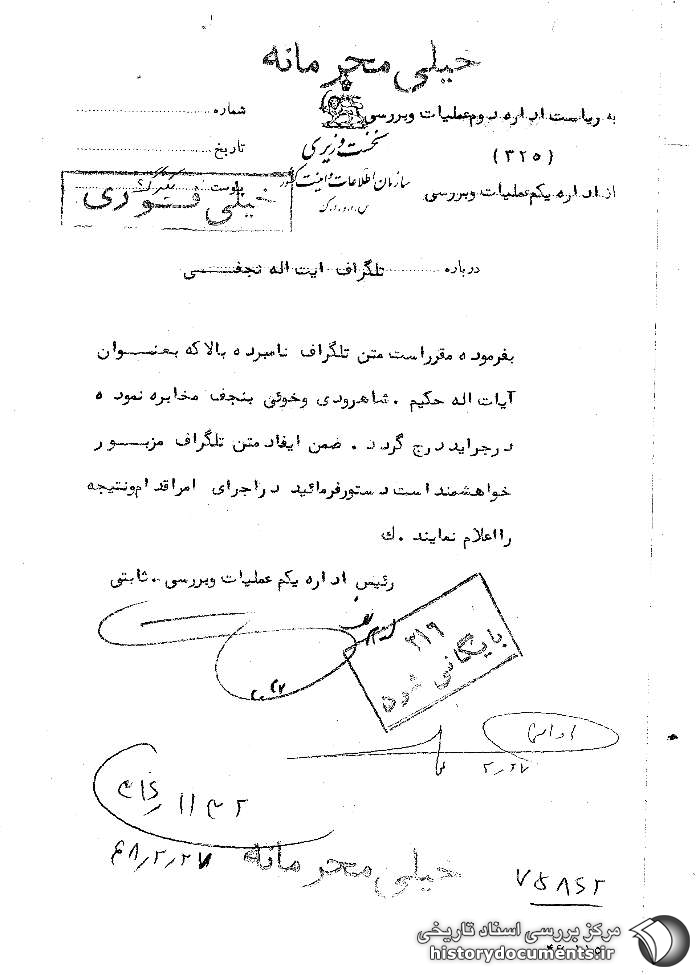 خیلی محرمانه
به ریاست اداره دوم عملیات وبررسی
(۳۲۵)
از اداره یکم عملیات وبررسی
نخست وزیری
سازمان اطلاعات و امنیت کشور
س.ا.و.ا.ک
شماره
تاریخ
پیوست
خیلی فـوری
درباره تلگراف ایت اله نجفـــی
بفرموده مقرراست متن تلگراف نامبرده بالاکه بعنـــوان
آیات اله حکیم . شاهرودی وخوئی بنجف مخابره نموده
درجراید درج گردد . ضمن ایفاد متن تلگراف مزبـــور
خواهشمند است دستورفرمائید دراجرای امراقدام‌ونتیجه
رااعلام نمایند .ك
رئیس اداره یکم عملیات وبررسی .ثابتی
۳۱۶
بایگانی شود
۲٫۲۷
۳۱۶/ ۱۱۴۲
۴۸٫۲٫۲۷
خیلی محرمانه
۷۵۸۶۲
مرکز بررسی اسناد تاریخی
historydocuments.ir